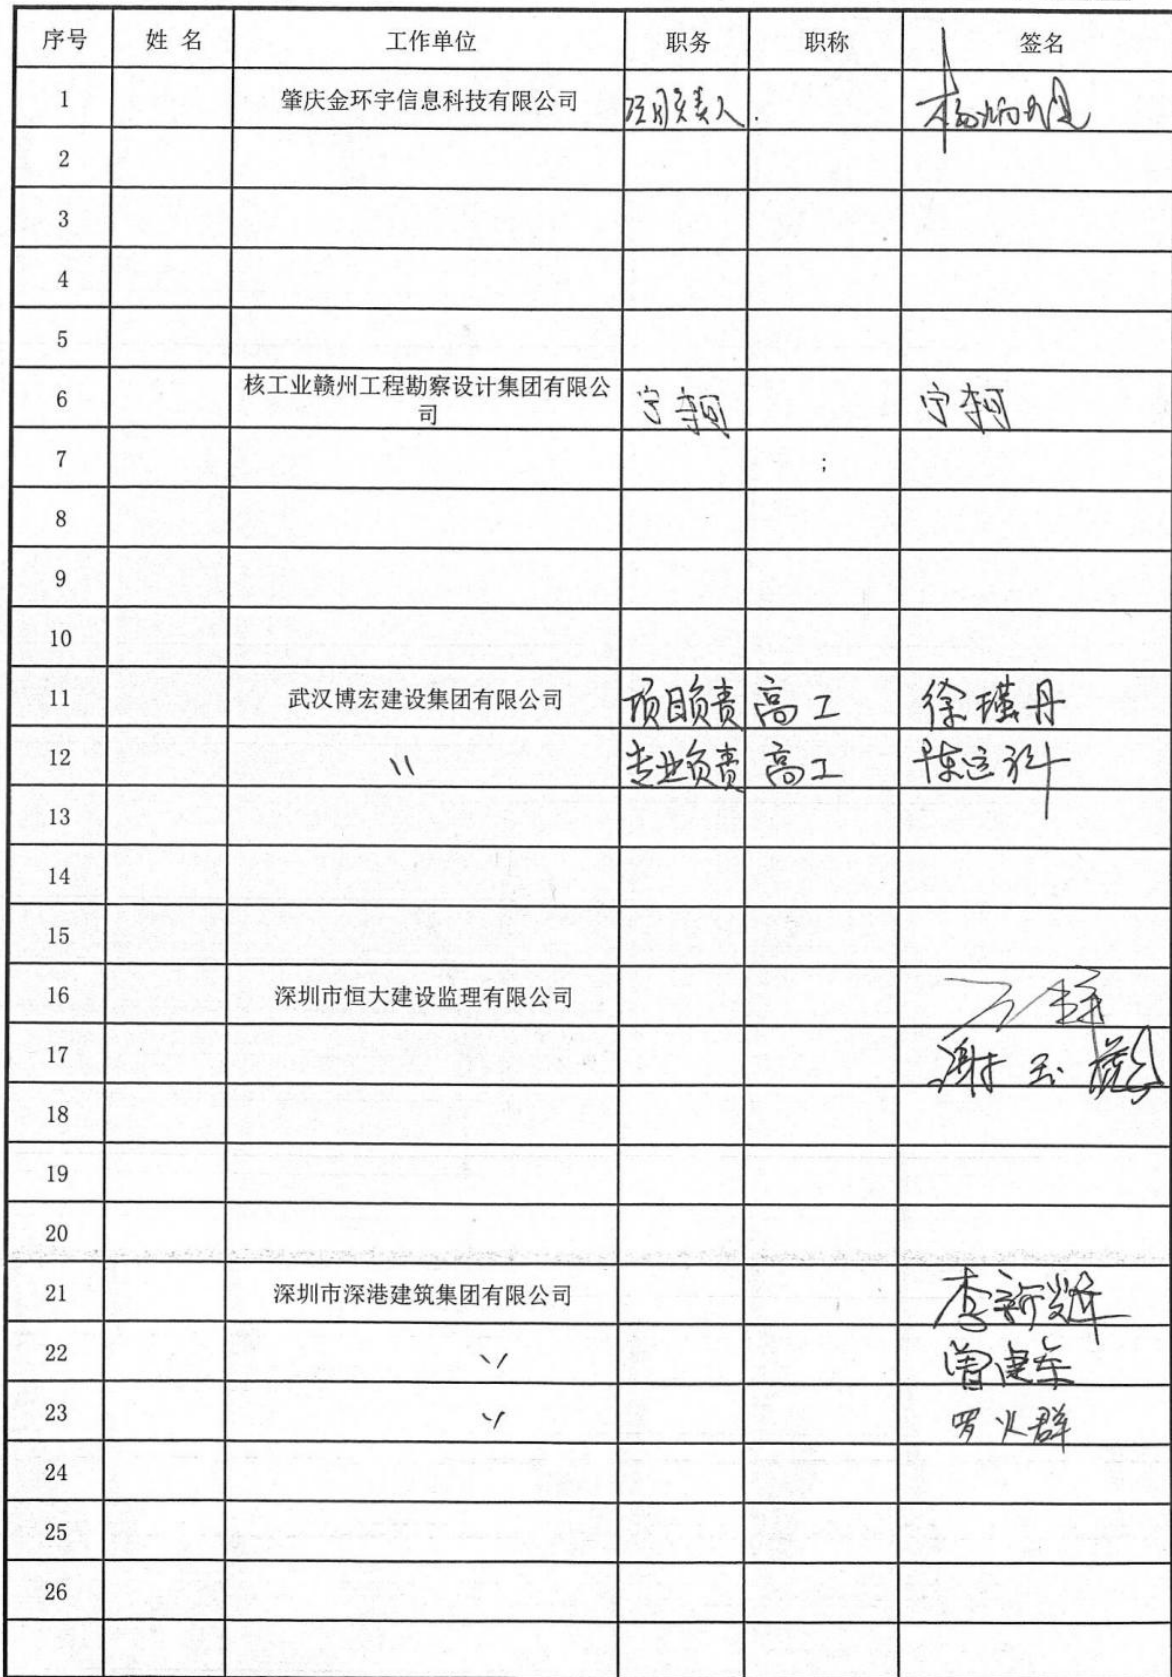 序号 姓 名 工作单位 职务 职称 签名
1 肇庆金环宇信息科技有限公司 项目负责人
2
3
4
5
6 核工业赣州工程勘察设计集团有限公
司
7
8
9
10
11 武汉博宏建设集团有限公司 项目负责 高工 徐瑾丹
12 〃 专业负责 高工
13
14
15
16 深圳市恒大建设监理有限公司
17
18
19
20
21 深圳市深港建筑集团有限公司 李新辉
22 〃 曾建东
23 〃 罗火群
24
25
26